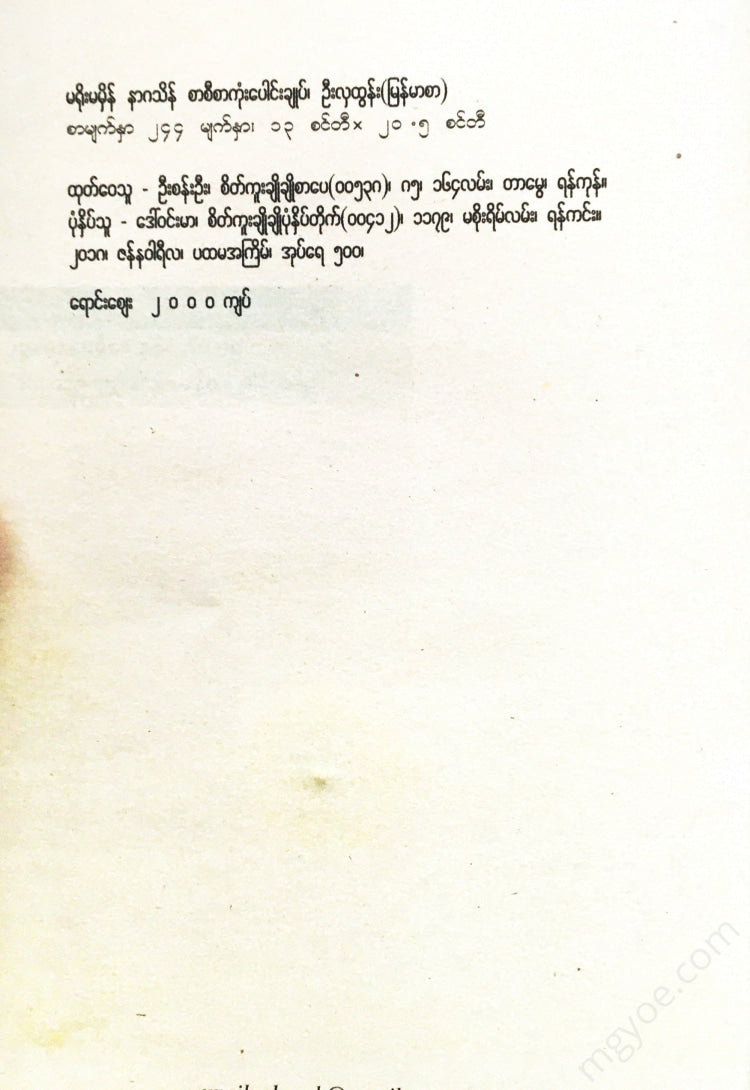 မရိုးမမှိန် နာဂသိန် စာစီစာကုံးပေါင်းချုပ်၊ ဦးလှထွန်း(မြန်မာစာ)
စာမျက်နှာ ၂၄၄ မျက်နှာ၊ ၁၃ စင်တီ× ၂၀.၅ စင်တီ
ထုတ်ဝေသူ - ဦးစန်းဦး၊ စိတ်ကူးချိုချိုစာပေ(၀၀၅၃၈)၊ ၈၅၊ ၁၆၄လမ်း၊ တာမွေ၊ ရန်ကုန်။
ပုံနှိပ်သူ - ဒေါ်ဝင်းမာ၊ စိတ်ကူးချိုချိုပုံနှိပ်တိုက်(၀၀၄၁၂)၊ ၁၁၇၉၊ မစိုးရိမ်လမ်း၊ ရန်ကင်း။
၂၀၁၈၊ ဇန်နဝါရီလ၊ ပထမအကြိမ်၊ အုပ်ရေ ၅၀၀၊
ရောင်းစျေး ၂ ၀ ၀ ၀ ကျပ်
mgyoe.com